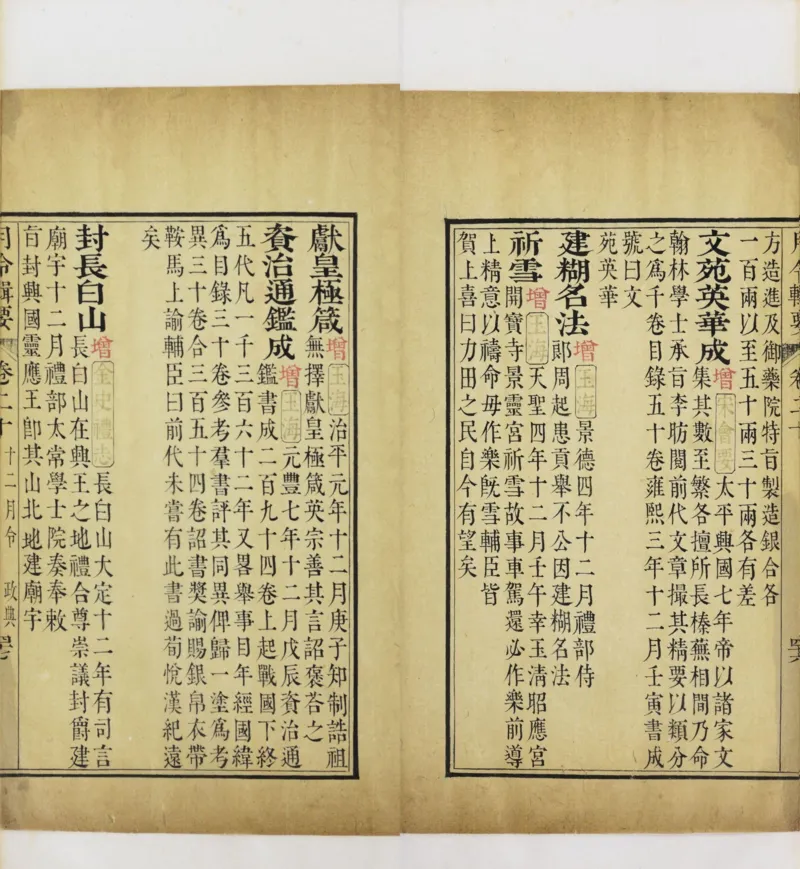 月令輯要 卷二十
方造進及御藥院特旨製造銀合各
一百兩以至五十兩三十兩各有差
文苑英華成 增 宋會要 太平興國七年帝以諸家文
集其數至繁各擅所長榛蕪相間乃命
翰林學士承旨李昉閱前代文章撮其精要以類分
之爲千卷目錄五十卷雍熙三年十二月壬寅書成
號曰文
苑英華
建糊名法 增 玉海 景德四年十二月禮部侍
郞周起患貢舉不公因建糊名法
祈雪 增 玉海 天聖四年十二月壬午幸玉淸昭應宮
開寶寺景靈宮祈雪故事車駕還必作樂前導
上精意以禱命毋作樂旣雪輔臣皆
賀上喜曰力田之民自今有望矣
獻皇極箴 增 玉海 治平元年十二月庚子知制誥祖
無擇獻皇極箴英宗善其言詔褒荅之
資治通鑑成 增 玉海 元豐七年十二月戊辰資治通
鑑書成二百九十四卷上起戰國下終
五代凡一千三百六十二年又畧舉事目年經國緯
爲目錄三十卷參考羣書評其同異俾歸一塗爲考
異三十卷合三百五十四卷詔書獎諭賜銀帛衣帶
鞍馬上諭輔臣曰前代未嘗有此書過荀悅漢紀遠
矣
封長白山 增 金史禮志 長白山大定十二年有司言
長白山在興王之地禮合尊崇議封爵建
廟宇十二月禮部太常學士院奏奉敕
旨封興國靈應王卽其山北地建廟宇
月令輯要 卷二十 十二月令 政典